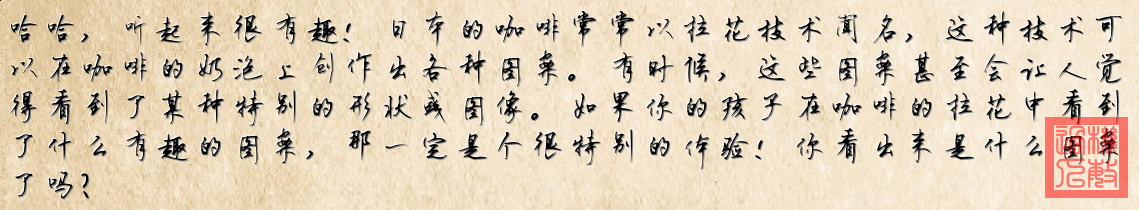 哈哈，听起来很有趣！日本的咖啡常常以拉花技术闻名，这种技术可
以在咖啡的奶泡上创作出各种图案。有时候，这些图案甚至会让人觉
得看到了某种特别的形状或图像。如果你的孩子在咖啡的拉花中看到
了什么有趣的图案，那一定是个很特别的体验！你看出来是什么图案
了吗？